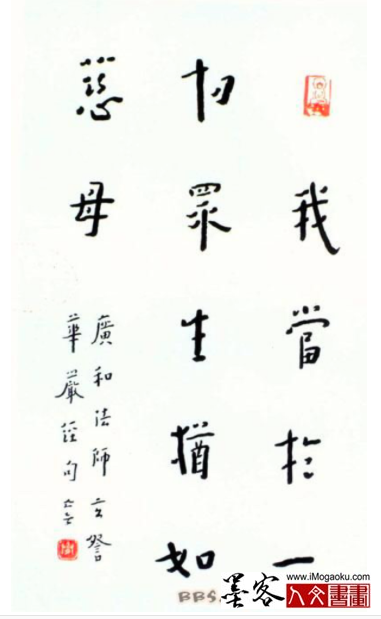 我當於一
切眾生猶如
慈母
廣和法師玄詧
華嚴經句
BBS.
墨客
www.iMogaoku.com
人文書畫